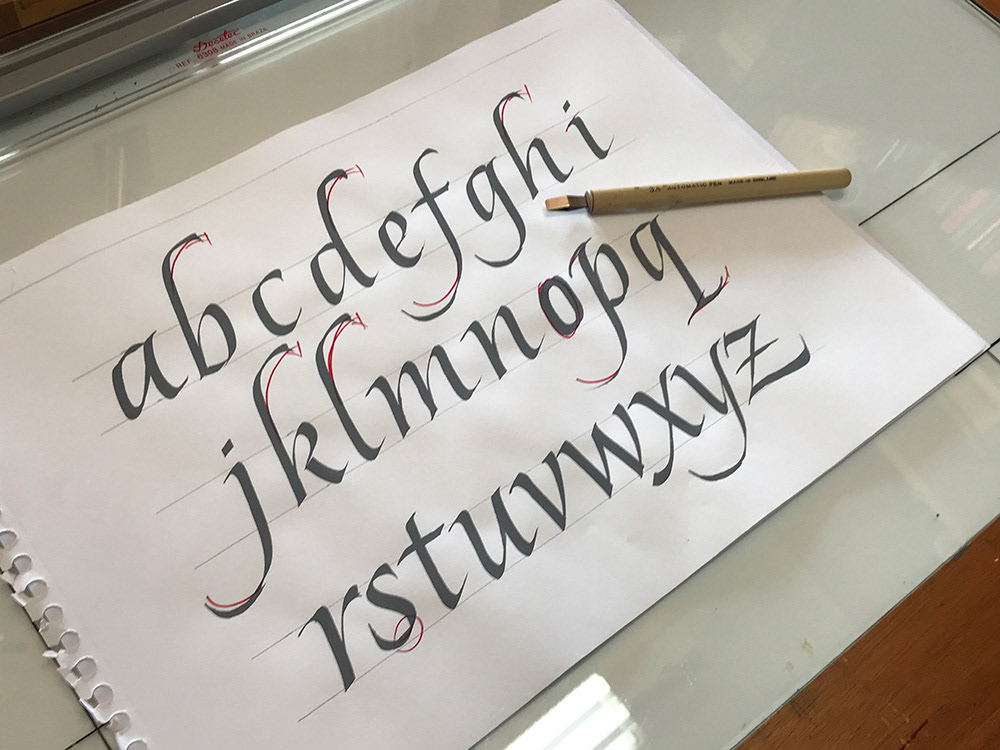 Desetec
REF. 6308 MADE IN BRAZIL
abcdefghi
3A AUTOMATIC PEN MADE IN ENGLAND
jklmnopq
rstuvwxyz